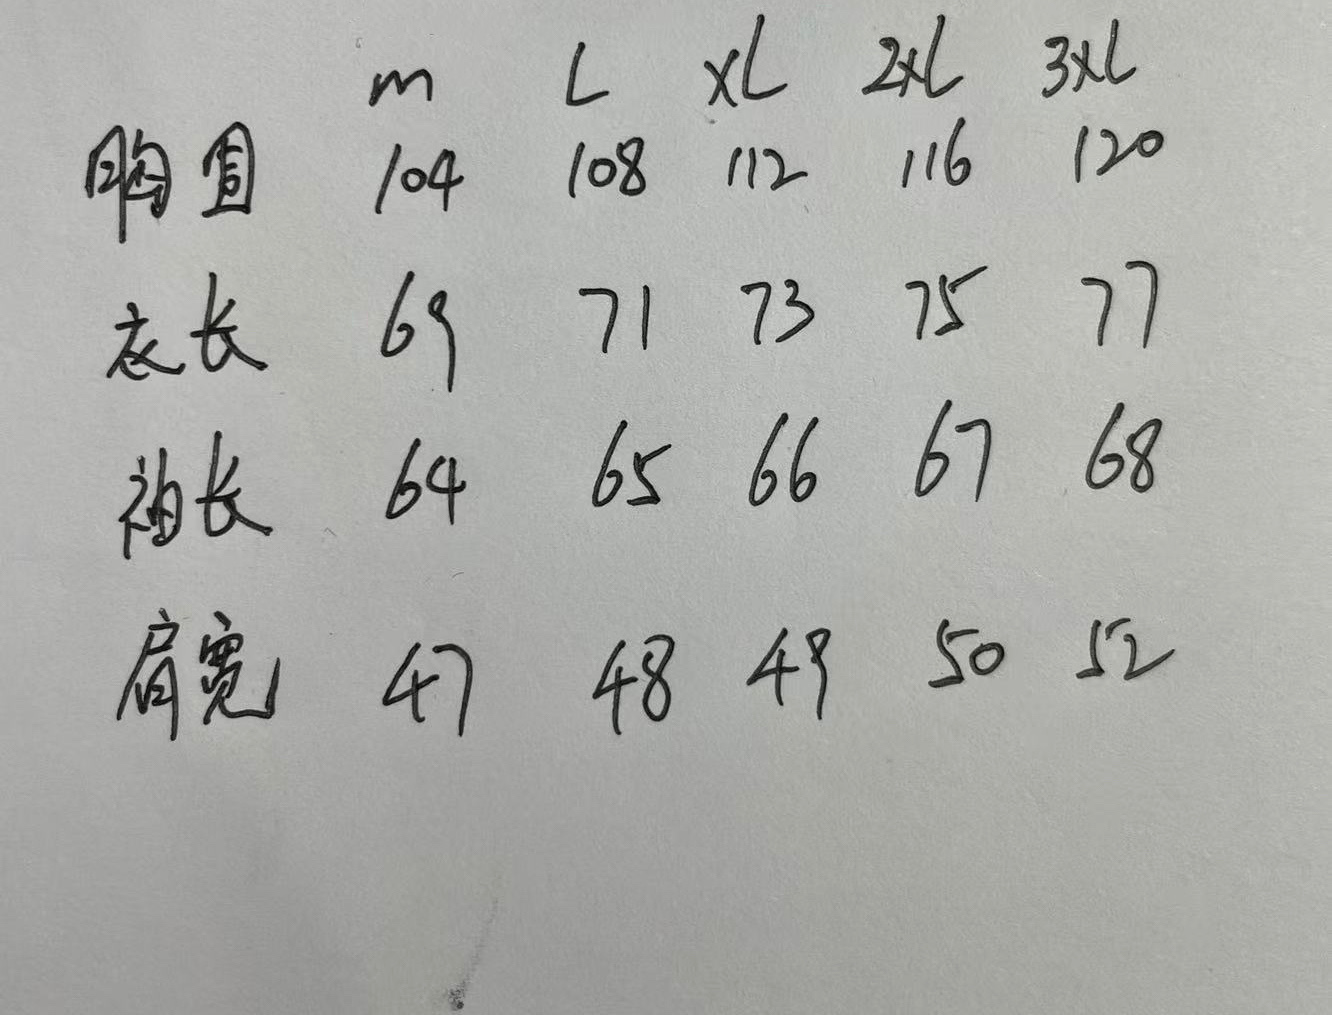 m L XL 2XL 3XL
胸围 104 108 112 116 120
衣长 69 71 73 75 77
袖长 64 65 66 67 68
肩宽 47 48 49 50 52